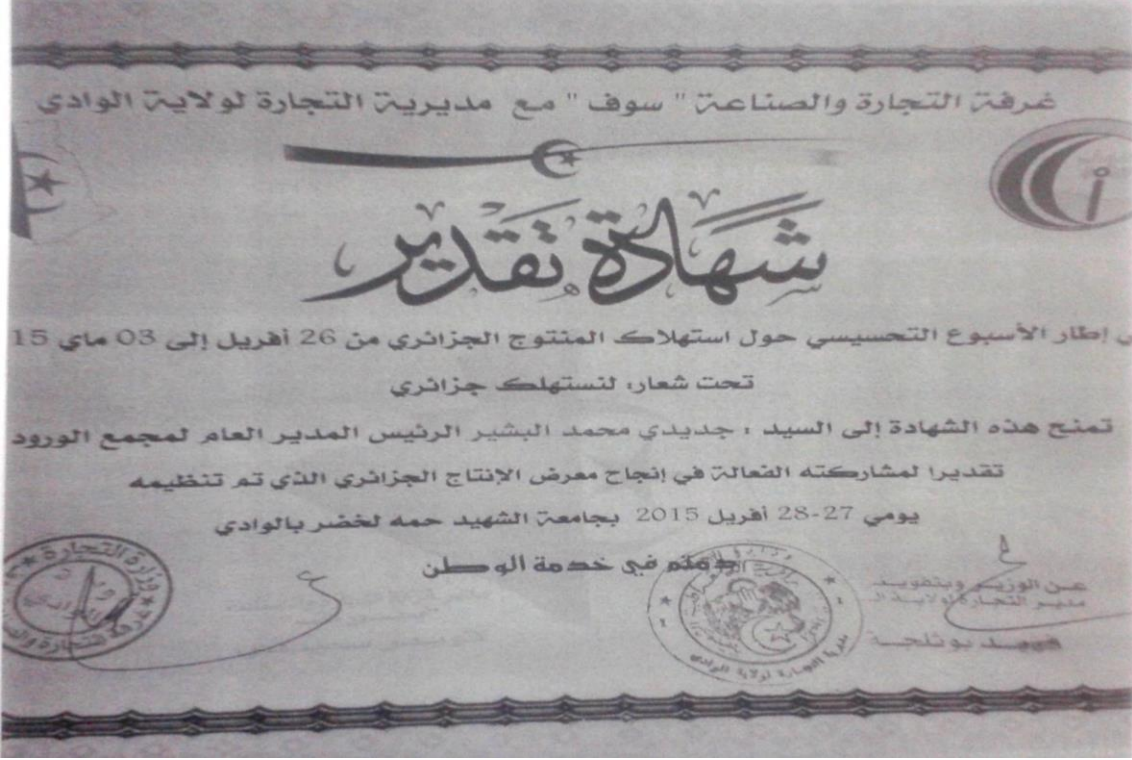 غرفة التجارة والصناعة " سوف " مع مديرية التجارة لولاية الوادي
شهادة تقدير
إطار الأسبوع التحسيسي حول استهلاك المنتوج الجزائري من 26 أفريل إلى 03 ماي 15
تحت شعار: لنستهلك جزائري
تمنح هذه الشهادة إلى السيد : جديدي محمد البشير الرئيس المدير العام لمجمع الورود
تقديرا لمشاركته الفعالة في إنجاح معرض الإنتاج الجزائري الذي تم تنظيمه
يومي 27-28 أفريل 2015 بجامعة الشهيد حمه لخضر بالوادي
دمتم في خدمة الوطن
عن الوزير وبتفويض
مدير التجارة لولاية
بوثلجة
وزارة التجارة
مديرية التجارة لولاية الوادي